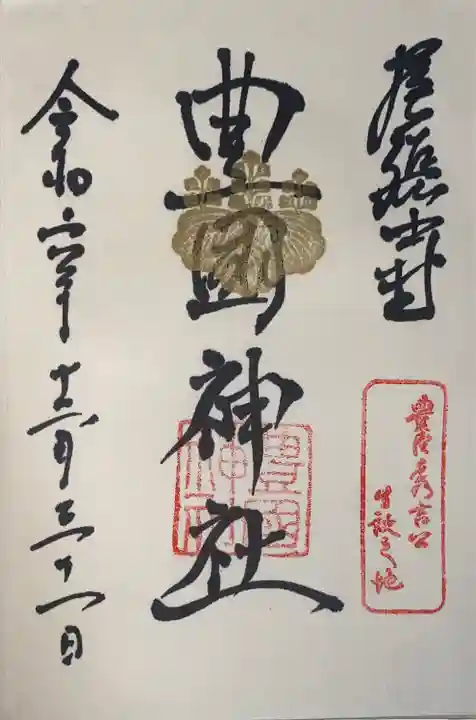 尾張中村
豊臣秀吉公
生誕之地
豊國神社
豊國神社
令和六年十二月三十一日